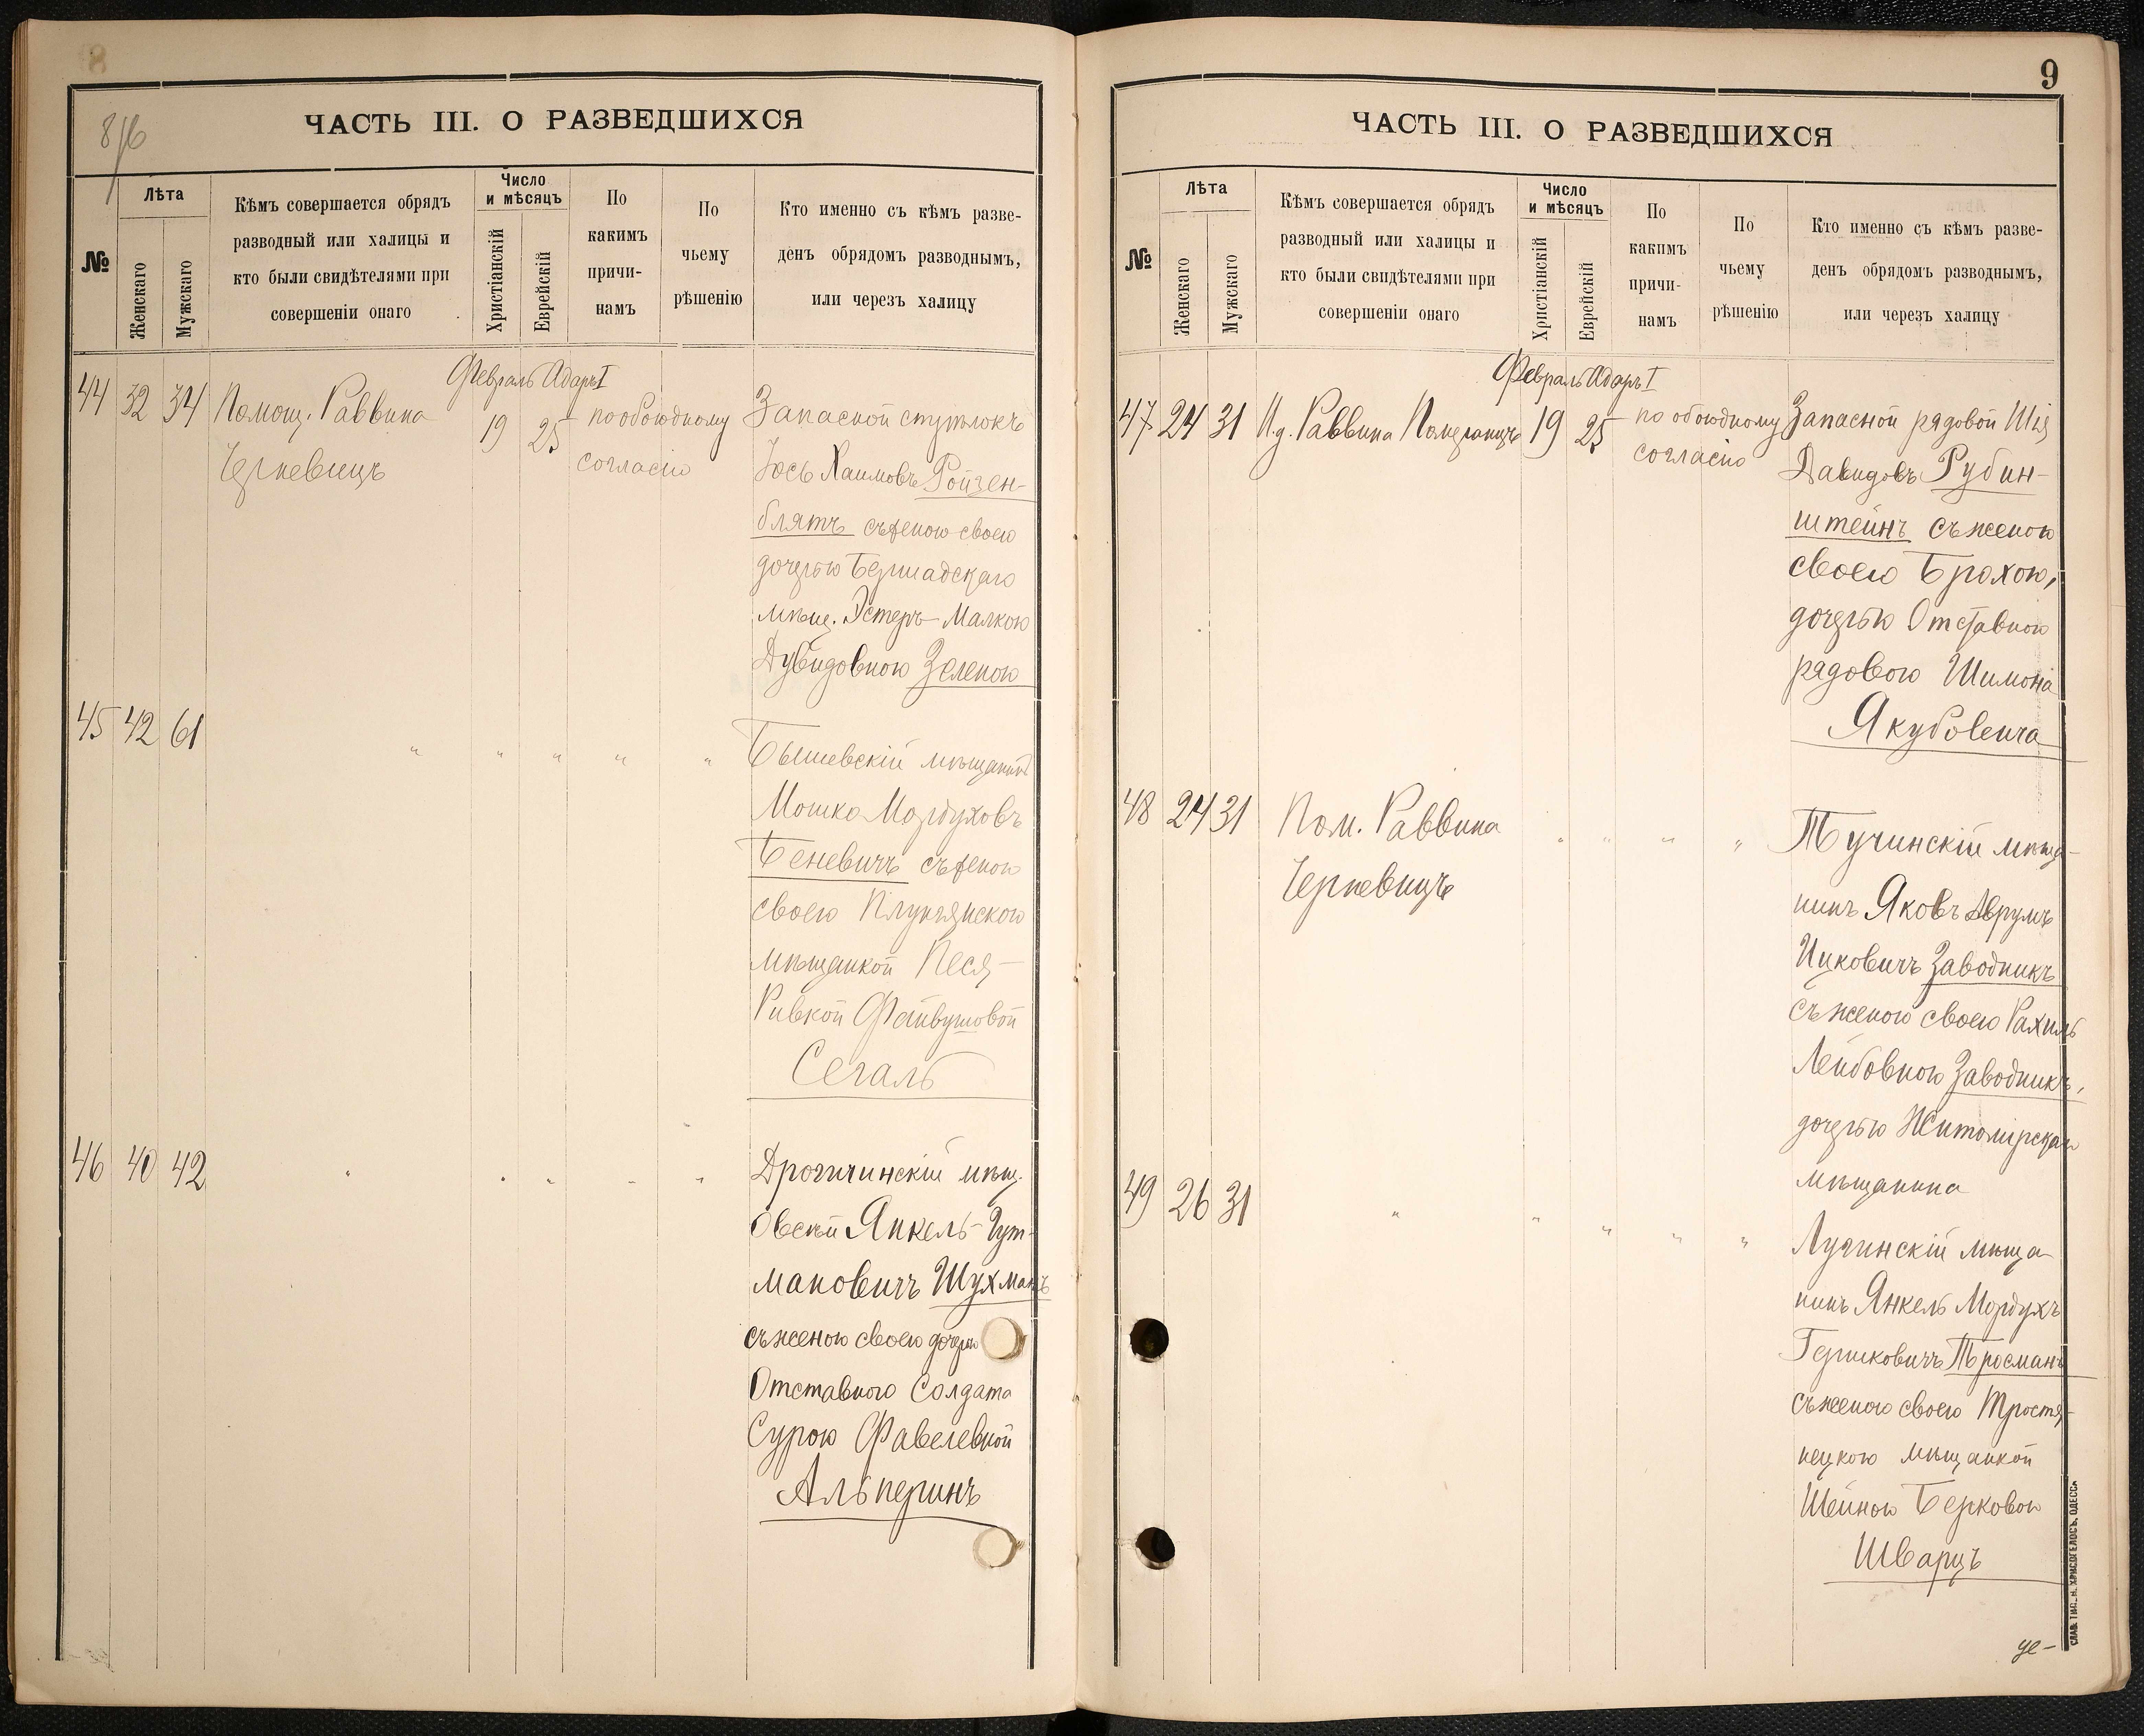 8
8/16
ЧАСТЬ III. О РАЗВЕДШИХСЯ
№
Лѣта
Женскаго
Мужскаго
Кѣмъ совершается обрядъ
разводный или халицы и
кто были свидѣтелями при
совершеніи онаго
Число
и мѣсяцъ
Христіанскій
Еврейскій
По
какимъ
причи-
намъ
По
чьему
рѣшенію
Кто именно съ кѣмъ разве-
денъ обрядомъ разводнымъ,
или черезъ халицу
Февраль Адаръ I
44 32 34 Помощ. Раввина 19 25 по обоюдному Запасной
Черкевицъ согласію
Іось Хаимовъ Ройзен-
блятъ съ женою своею
дочерью Бершадскаго
мѣщ. Эстеръ-Малкою
Дувидовною Зеленою
45 42 61 " " " " " Бышевскій мѣщанинъ
Мошко Мордуховъ
Беневичъ съ женою
своею
мѣщанкой Песя-
Ривкой Файвушовой
Сегаль
46 40 42 " " " " " Дрогичинскій мѣщ.
Овсей Янкель-Гут-
мановичъ Шухманъ
съ женою своею дочерью
Отставного Солдата
Сурою Фавелевной
Альперинъ
9
ЧАСТЬ III. О РАЗВЕДШИХСЯ
№
Лѣта
Женскаго
Мужскаго
Кѣмъ совершается обрядъ
разводный или халицы и
кто были свидѣтелями при
совершеніи онаго
Число
и мѣсяцъ
Христіанскій
Еврейскій
По
какимъ
причи-
намъ
По
чьему
рѣшенію
Кто именно съ кѣмъ разве-
денъ обрядомъ разводнымъ,
или черезъ халицу
Февраль Адаръ I
47 24 31 И.д. Раввина Померанцъ 19 25 по обоюдному Запасной рядовой Шія
согласію Давидовъ Рубин-
штейнъ съ женою
своею Брохою,
дочерью Отставного
рядового Шимона
Якубовича
48 24 31 Пом. Раввина " " " " Тучинскій мѣща-
Черкевицъ
нинъ Яковъ Аврумъ
Ицковичъ Заводникъ
съ женою своею Рахиль
Лейбовною Заводникъ,
дочерью Житомірскаго
мѣщанина
49 26 31 " " " " " Лугинскій мѣща-
нинъ Янкель Мордухъ
Гершковичъ Тросманъ
съ женою своею Тростя-
нецкою мѣщанкой
Шейною Берковою
Шварцъ
СЛАВ. ТИП. Н. ХРИСОГЕЛОСЪ, ОДЕССА